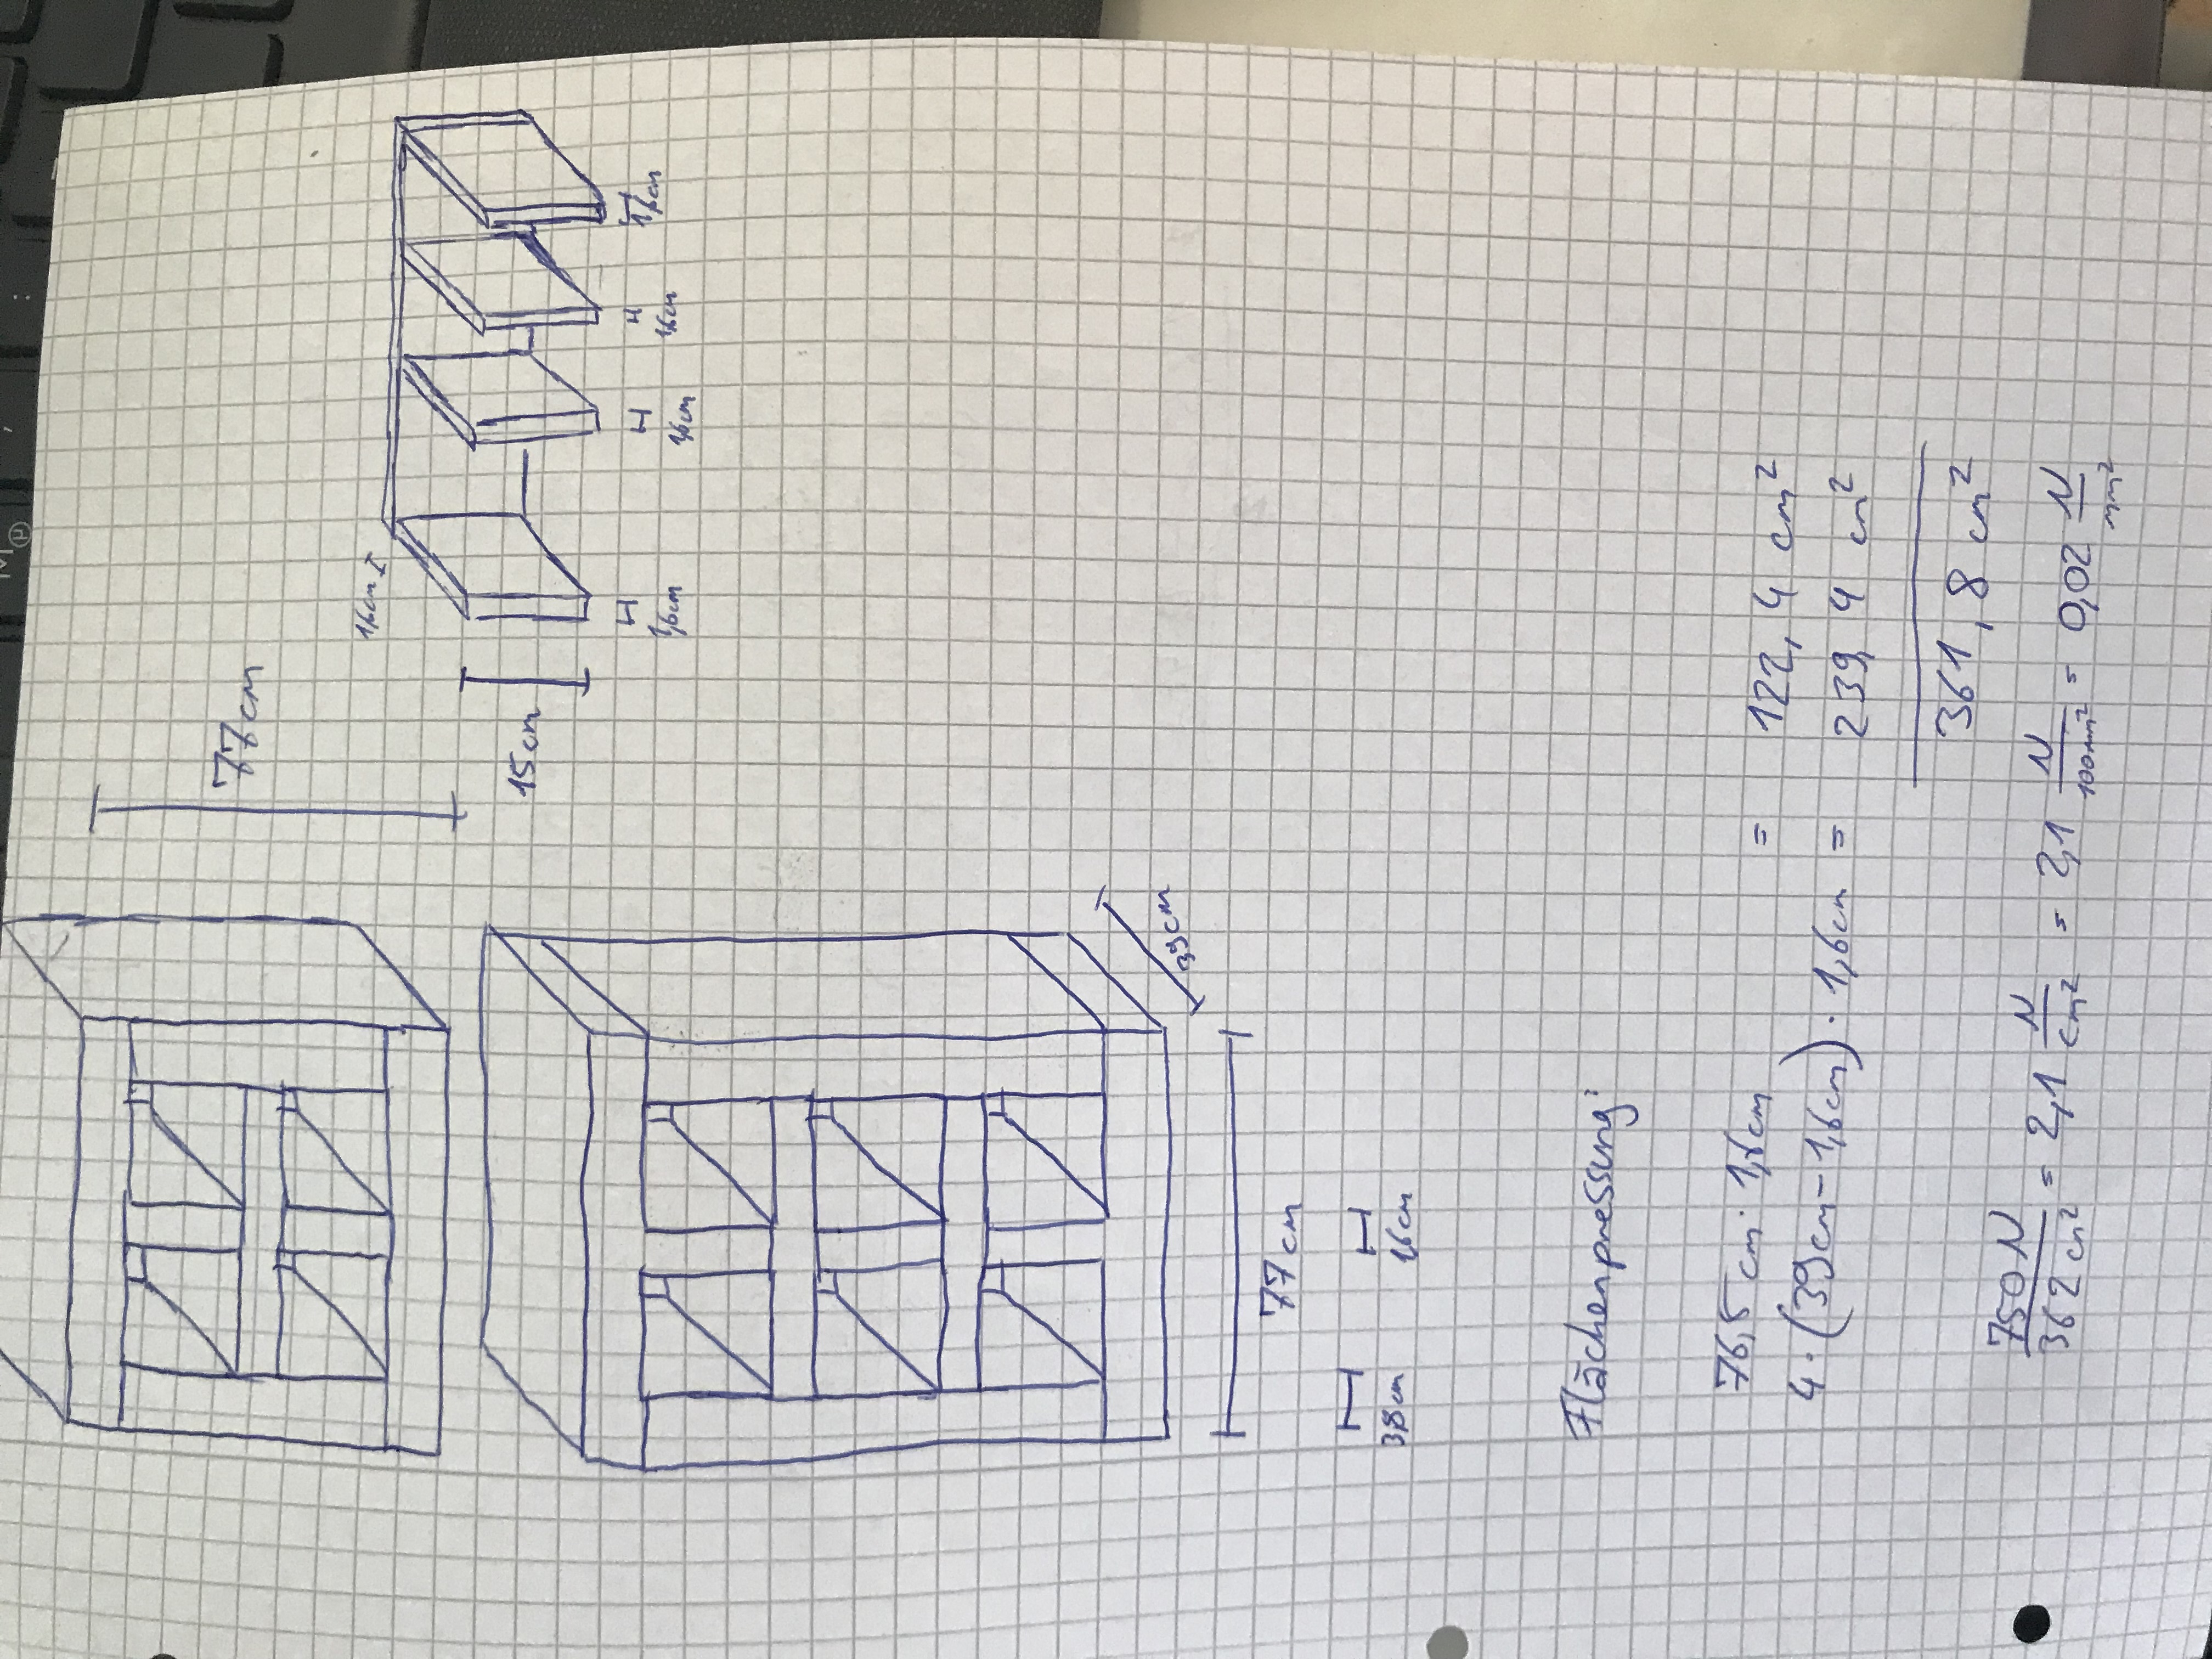 77cm
15cm
1,6cm
1,6cm
1,6cm
1,6cm
1,6cm
39cm
77cm
3,8cm
1,6cm
Flächenpressung:
76,5 cm · 1,6cm = 122,4 cm²
4 · (39cm - 1,6cm) · 1,6cm = 239,4 cm²
361,8 cm²
750 N / 362 cm² = 2,1 N/cm² = 2,1 N/100mm² = 0,02 N/mm²
M